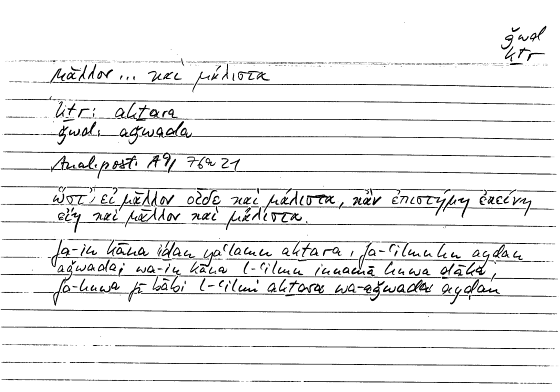 ǧwd
kṯr
μᾶλλον ... καὶ μάλιστα
kṯr: akṯara
ǧwd: aǧwada
Anal. post. A 9, 76a 21
ὥστ' εἰ μᾶλλον οἶδε καὶ μάλιστα, κἂν ἐπιστήμη ἐκείνη
εἴη καὶ μᾶλλον καὶ μάλιστα.
fa-in kāna iḏan yaʿlamu akṯara, fa-ʿilmuhu ayḍan
aǧwadu; wa-in kāna l-ʿilmu innamā huwa ḏāka,
fa-huwa fī bābi l-ʿilmi akṯara wa-aǧwada ayḍan